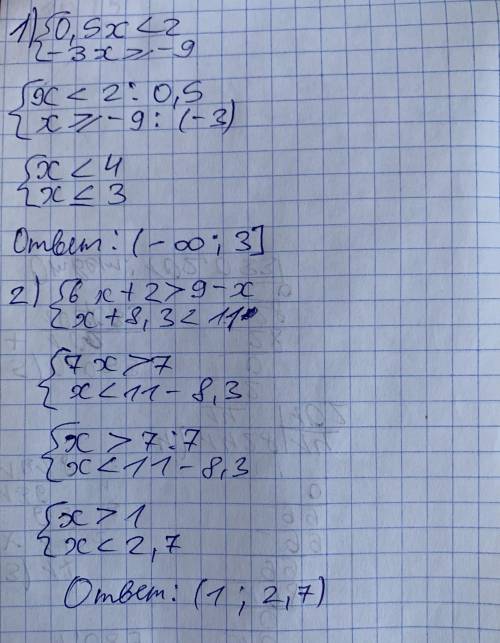 1) {0,5x < 2
{-3x ⩾ -9
{x < 2 : 0,5
{x ⩾ -9 : (-3)
{x < 4
{x ≤ 3
Ответ: (-∞; 3]
2) {6x + 2 > 9 - x
{x + 8,3 < 11
{7x > 7
{x < 11 - 8,3
{x > 7 : 7
{x < 11 - 8,3
{x > 1
{x < 2,7
Ответ: (1; 2,7)